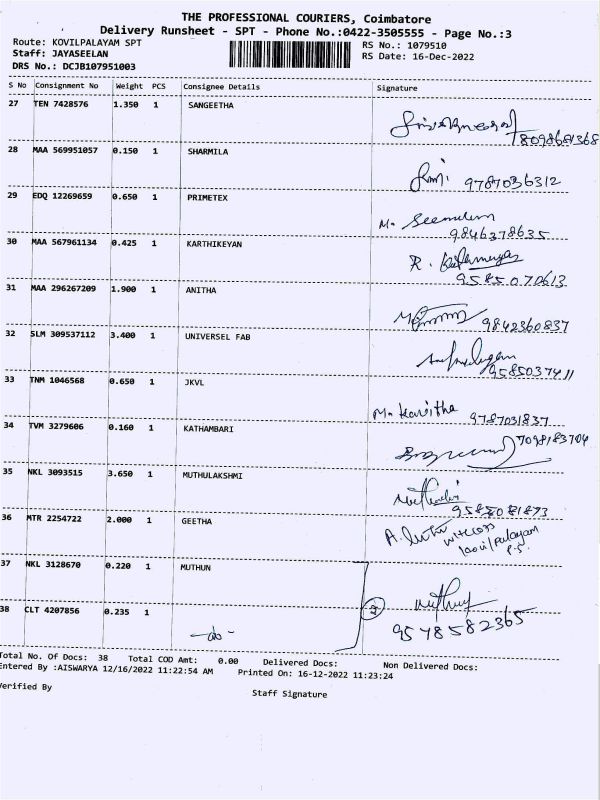 THE PROFESSIONAL COURIERS, Coimbatore
Delivery Runsheet - SPT - Phone No.:0422-3505555 - Page No.:3
Route: KOVILPALAYAM SPT
RS No.: 1079510
Staff: JAYASEELAN
RS Date: 16-Dec-2022
DRS No.: DCJB107951003
S No Consignment No Weight PCS Consignee Details Signature
27 TEN 7428576 1.350 1 SANGEETHA
8098681368
28 MAA 569951057 0.150 1 SHARMILA
9787036312
29 EDQ 12269659 0.650 1 PRIMETEX
9846378635
30 MAA 567961134 0.425 1 KARTHIKEYAN
9585070613
31 MAA 296267209 1.900 1 ANITHA
9842360837
32 SLM 309537112 3.400 1 UNIVERSEL FAB
9585037411
33 TNM 1046568 0.650 1 JKVL
M. Kavitha 9787031837
34 TVM 3279606 0.160 1 KATHAMBARI
7098183704
35 NKL 3093515 3.650 1 MUTHULAKSHMI
9585081873
36 MTR 2254722 2.000 1 GEETHA
P.S.
37 NKL 3128670 0.220 1 MUTHUN
38 CLT 4207856 0.235 1
-do-
9578582365
Total No. Of Docs: 38 Total COD Amt: 0.00 Delivered Docs: Non Delivered Docs:
Entered By :AISWARYA 12/16/2022 11:22:54 AM Printed On: 16-12-2022 11:23:24
Verified By
Staff Signature